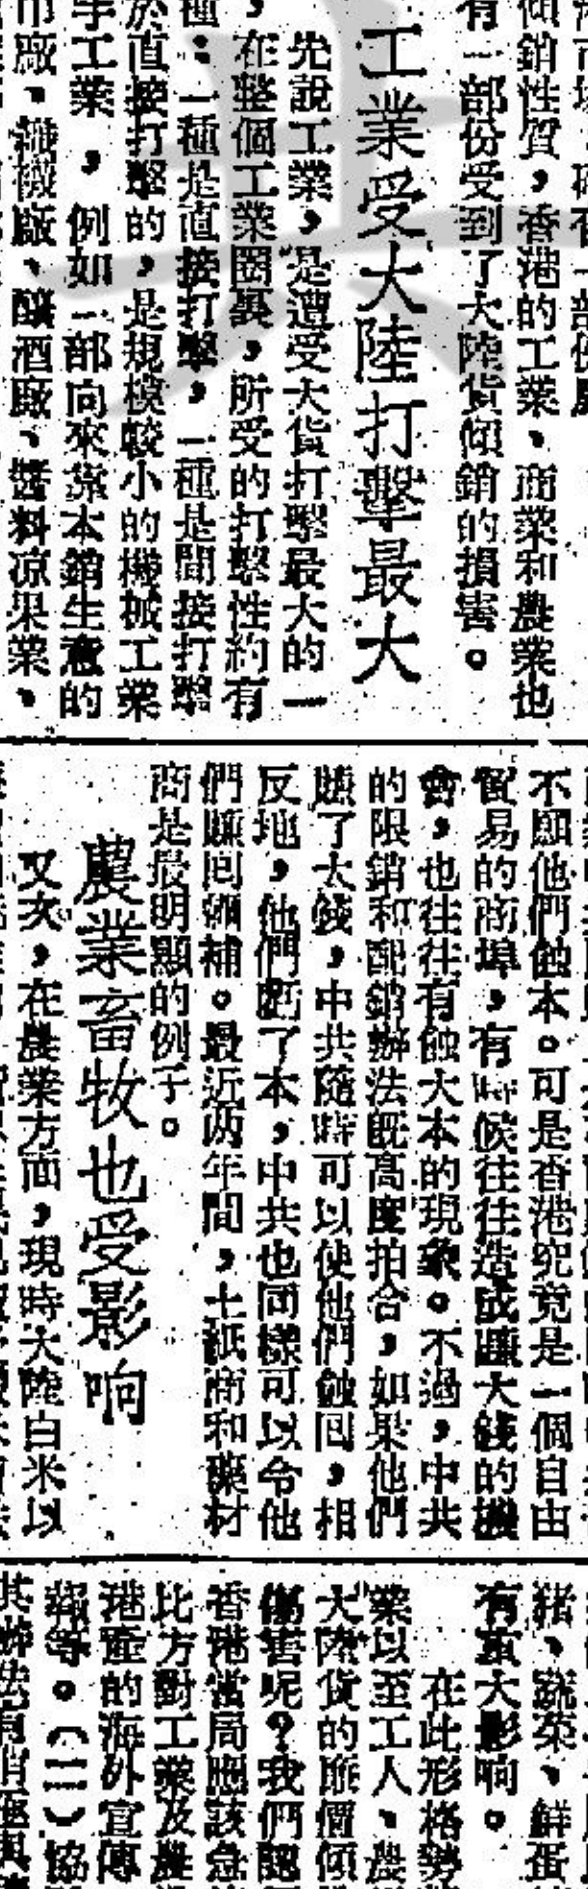 傾銷性質，香港的工業、商業和農業也
有一部份受到了大陸貨傾銷的損害。
工業受大陸打擊最大
先說工業，是遭受大貨打擊最大的一
，在整個工業圈裏，所受的打擊性約有
種：一種是直接打擊，一種是間接打擊
於直接打擊的，是規模較小的機械工業
手工業，例如一部向來靠本銷生意的
巾廠、織襪廠、釀酒廠、醬料凉果業、
不願他們蝕本。可是香港究竟是一個自由
貿易的商埠，有時候往往造成賺大錢的機
會，也往往有蝕大本的現象。不過，中共
的限銷和配銷辦法旣高度拍合，如果他們
賺了大錢，中共隨時可以使他們蝕回，相
反地，他們虧了本，中共也同樣可以令他
們賺回彌補。最近两年間，土紙商和藥材
商是最明顯的例子。
農業畜牧也受影响
又次，在農業方面，現時大陸白米以
猪、蔬菜、鮮蛋
有重大影响。
在此形格勢
業以至工人、農
大陸貨的廉價傾
傷害呢？我們認
香港當局應該急
比方對工業及農
港產的海外宣傳
等。（二）協